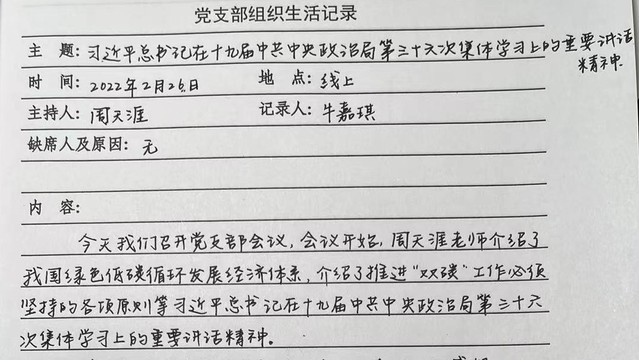 党支部组织生活记录
主 题: 习近平总书记在十九届中共中央政治局第三十六次集体学习上的重要讲话
精神
时 间: 2022年2月26日 地 点: 线上
主持人: 周天涯 记录人: 牛嘉琪
缺席人及原因: 无
内 容:
今天我们召开党支部会议,会议开始,周天涯老师介绍了
我国绿色低碳循环发展经济体系,介绍了推进“双碳”工作必须
坚持的各项原则等习近平总书记在十九届中共中央政治局第三十六
次集体学习上的重要讲话精神。